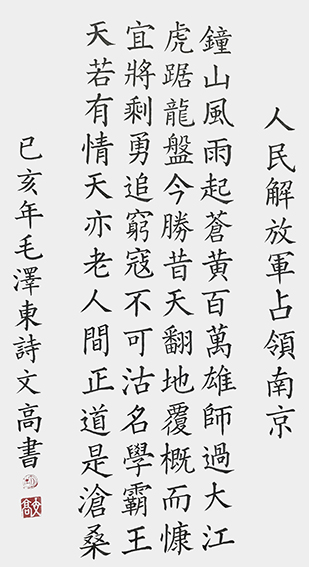 人民解放軍占領南京
鐘山風雨起蒼黃百萬雄師過大江
虎踞龍盤今勝昔天翻地覆概而慷
宜將剩勇追窮寇不可沽名學霸王
天若有情天亦老人間正道是滄桑
己亥年毛澤東詩文高書